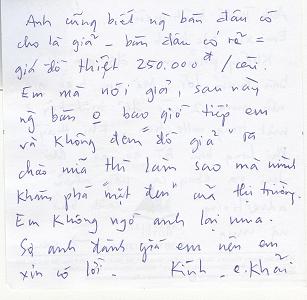 Anh cũng biết ng̀ bán đâu có
cho là giả – bán đâu có rẻ =
giá đồ thiệt 250.000đ / cái.
Em mà nói giả, sau này
ng̀ bán o bao giờ tiếp em
và không đem "đồ giả" ra
chào nữa thì làm sao mà mình
khám phá "mặt đen" của thị trường.
Em không ngờ anh lại mua.
Sợ anh đánh giá em nên em
xin có lời. Kính, e. Khải